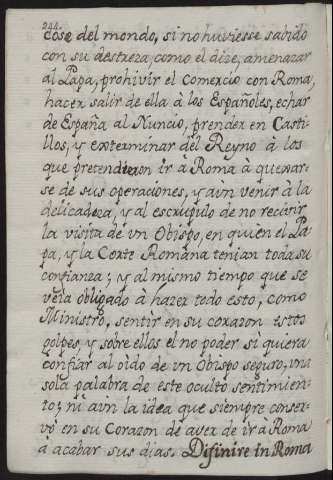 244.
cosé del mondo, si no huviesse sabido
con su destreza, como el dize, amenazar
al Papa, prohivír el comercio con Roma,
hacer salír de ella à los Españoles, echar
de España al Nuncio, prender en Casti-
llos, y exterminar del Reyno à los
que pretendieron ir à Roma à quexar-
se de sus operaciones, y aùn venir à la
delicadeza, y al escrupulo de no recivir
la visita de un Obispo, en quien el Pa-
pa, y la Corte Romana tenian toda su
confianza; y al mismo tiempo que se
veìa obligado à hazer todo esto, como
Ministro, sentir en su corazon estos
golpes, y sobre ellos el no poder si quiera
confiar al oìdo de un Obispo seguro, una
sola palabra de este oculto sentimien-
to; ni aùn la idea que siempre conser-
vò en su Corazon de aver de ir à Roma
à acabar sus dias. Difinire in Roma